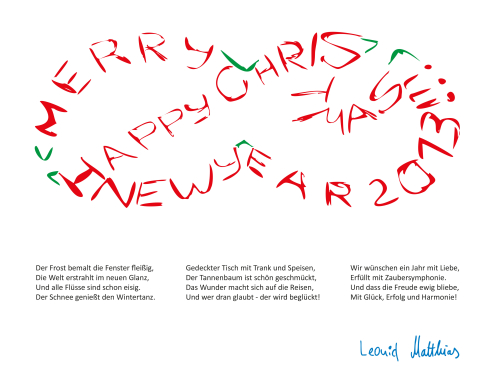 MERRY CHRISTMAS!!!
HAPPY NEW YEAR 2013
Der Frost bemalt die Fenster fleißig,
Die Welt erstrahlt im neuen Glanz,
Und alle Flüsse sind schon eisig.
Der Schnee genießt den Wintertanz.
Gedeckter Tisch mit Trank und Speisen,
Der Tannenbaum ist schön geschmückt,
Das Wunder macht sich auf die Reisen,
Und wer dran glaubt - der wird beglückt!
Wir wünschen ein Jahr mit Liebe,
Erfüllt mit Zaubersymphonie.
Und dass die Freude ewig bliebe,
Mit Glück, Erfolg und Harmonie!
Leonid Matthias